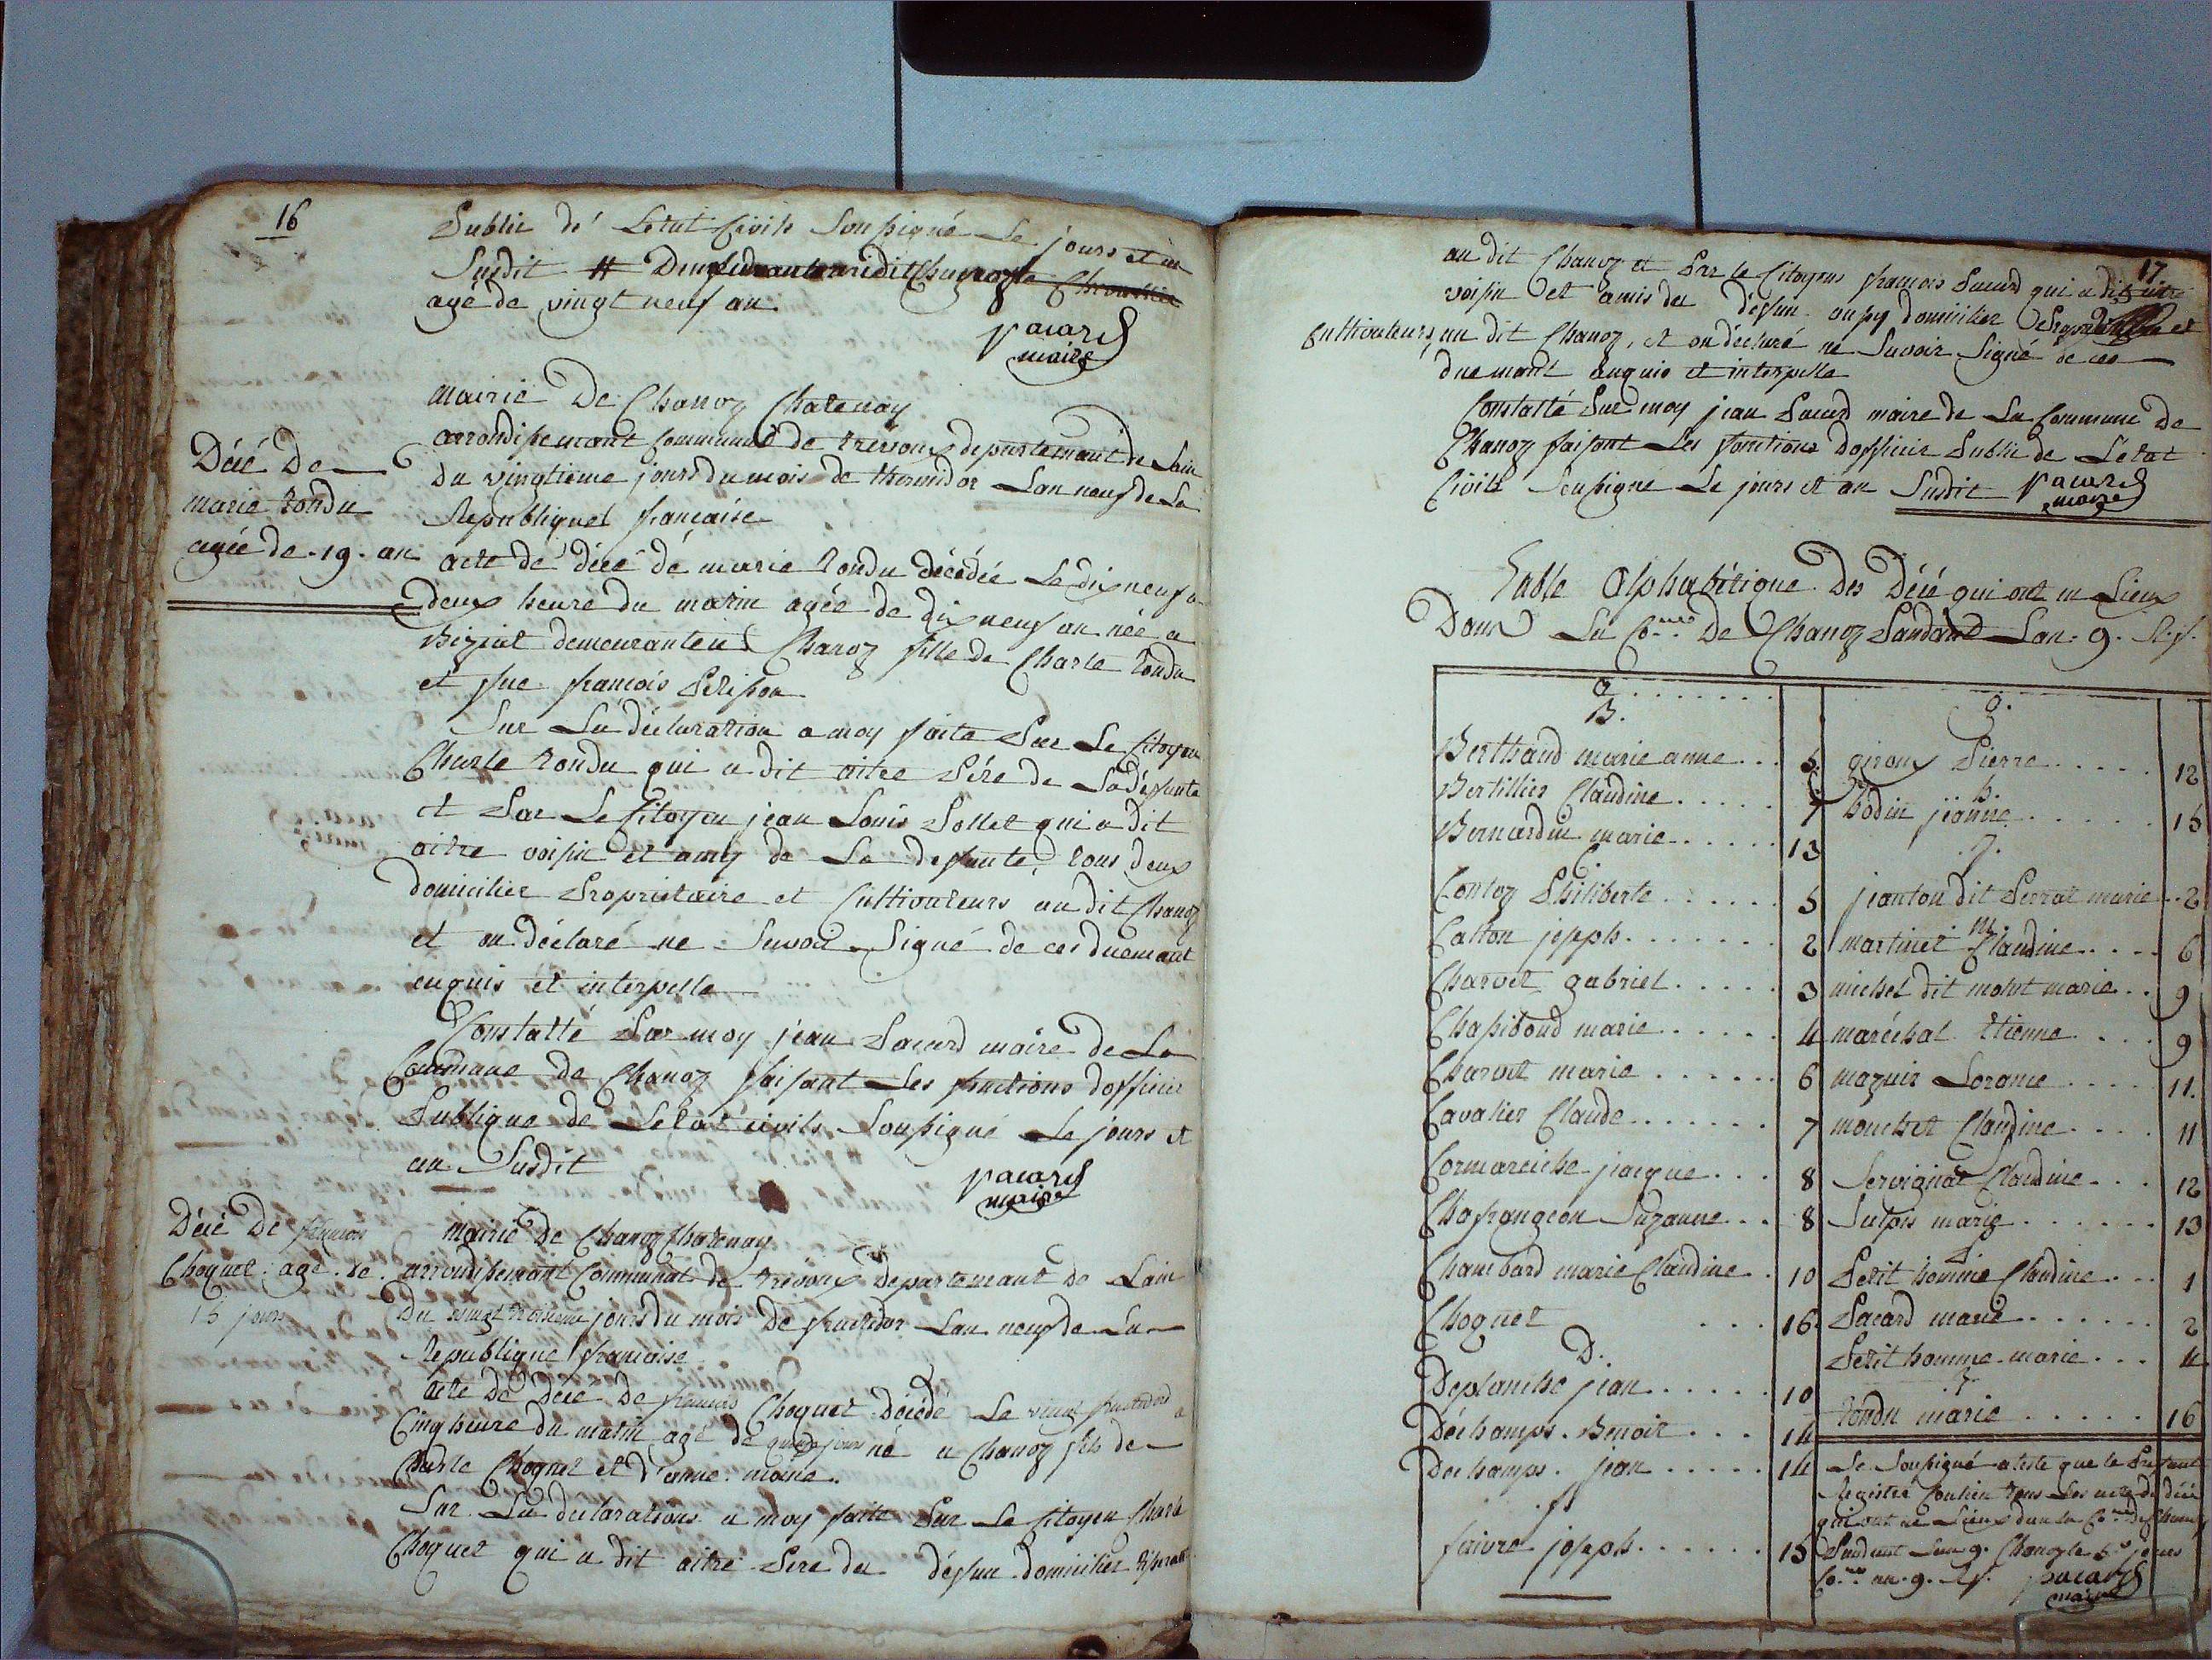 16
Public de Letat Civils Soussigné Le jours et an
Susdit # Chevallier
agé de vingt neuf an
pacard
maire
mairie De Chanoz Chatenay
arrondissemant Communal de trevoux departemant de Lain
Du vingtieme jours du mois de thermidor Lan neuf de La
Republique française
Décé De
marie tondu
agée de .19. an
acte de décé de marie tondu décédée Le dix neuf a
deux heure du matin agée de dix neuf an née a
Biziat demeurante Chanoz fille de Charle tondu
et fue francois Petisson
Sur La déclaration a moy faite Par Le Citoyen
Charle tondu qui a dit aitre Pére de La défunte
et Par Le Citoyen jean Louis Pollet qui a dit
aitre voisin et amy de La defunte, tous deux
domicilier Proprietaire et Cultivateurs au dit Chanoz
et on déclaré ne Savoir Signé de ces duemant
enquis et interpelle
Constatté Par moy jean Pacard maire de La
Commune de Chanoz faisant Les functions dofficier
Publique de Letat civils Soussigné Le jours et
an Susdit
pacard
maire
Décé De francois
Choquet agé de
15 jours
mairie de Chanoz Chatenay
arrondissemant Communal de trevoux Departemant de Lain
Du vingt troisieme jours du mois de fructidor Lan neuf de La
Republique francaise
acte de décé De francois Choquet Décédé Le vingt fructidor a
Cinq heure du matin agé de quinze jours né a Chanoz fils de
Charle Choquet et d'anne moine.
Sur La declarations a moy faite Par Le Citoyen Charle
Choquet qui a dit aitre Pere du défun domicilier
17
au dit Chanoz et Par le Citoyens francois Pacard qui a dit aitre
voisin et amis du défun aussy domicilier et
Cultivateurs au dit Chanoz, et on déclaré ne Savoir Signé de ces
duemant enquis et interpelle
Constatté Par moy jean Pacard maire de La Commune de
Chanoz faisant Les fonctions dofficier Public de Létat
Civils Soussigné Le jours et an Susdit pacard
maire
Table Alphabétique Des Décé qui ont eu Lieux
Dans La Co.ne De Chanoz Pandand Lan. 9. R.f.
a
B.
Berthaud marie anne . . . 5
Bertillier Claudine . . . . . 7
Bernardin marie . . . . . 13
C
Contoz Philiberte . . . . . . 5
Catton joseph . . . . . . . 2
Charvet gabriel . . . . . 3
Chapiboud marie . . . . . 4
Charvet marie . . . . . . 6
Cavalier Claude . . . . . . 7
Cormareiche jacque . . . 8
Chafrangeon Suzanne . . 8
Chambard marie Claudine . 10
Choquet . . . 16
D.
Deplanche jean . . . . . 10
Déchamps Benoit . . . 14
Dechamps jean . . . . . 14
f
faivre joseph . . . . . . 15
g.
giroux Pierre . . . . . 12
h.
hodin jeanne . . . . . . 15
J.
jeanton dit Perrat marie . . 2
m.
martinet Claudine . . . . 6
michel dit molut marie . . 9
maréchal Etienne . . . 9
mazuir Lorance . . . . 11.
mouchet Claudine . . . . 11
Servignat Claudine . . . 12
Sulpis marie . . . . . . 13
P
Petit homme Claudine . . . 1
Pacard marie . . . . . . 2
Petit homme marie . . . 4
T
tondu marie . . . . . 16
Le Soussigné ateste que le Presant
Registre Contien tous Les acte de décé
qui ont eu Lieux dans La Co.ne de Chanoz
Pandant Lan 9. Chanoz le 5.e jours
Co.re an. 9. R.f. pacard
maire